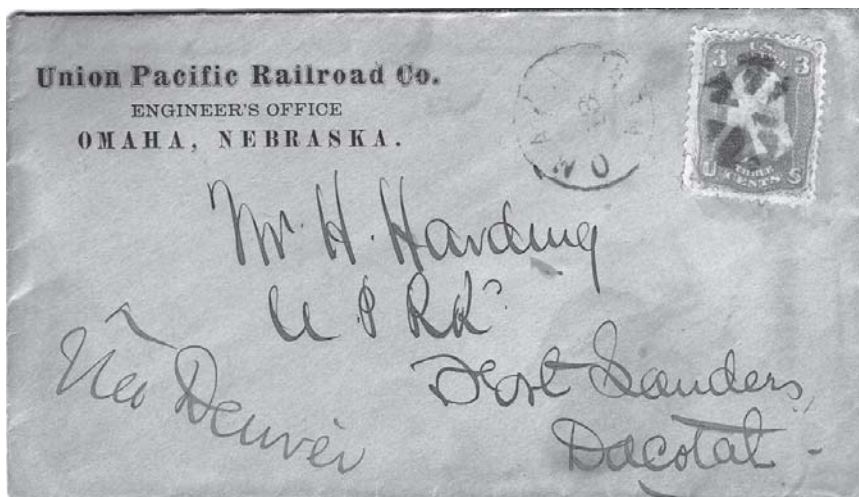 Union Pacific Railroad Co.
ENGINEER'S OFFICE
OMAHA, NEBRASKA.
3 U.S. 3
U THREE CENTS S
Mr. H. Harding
U P RR
Fort Sanders
Dacotah
Via Denver